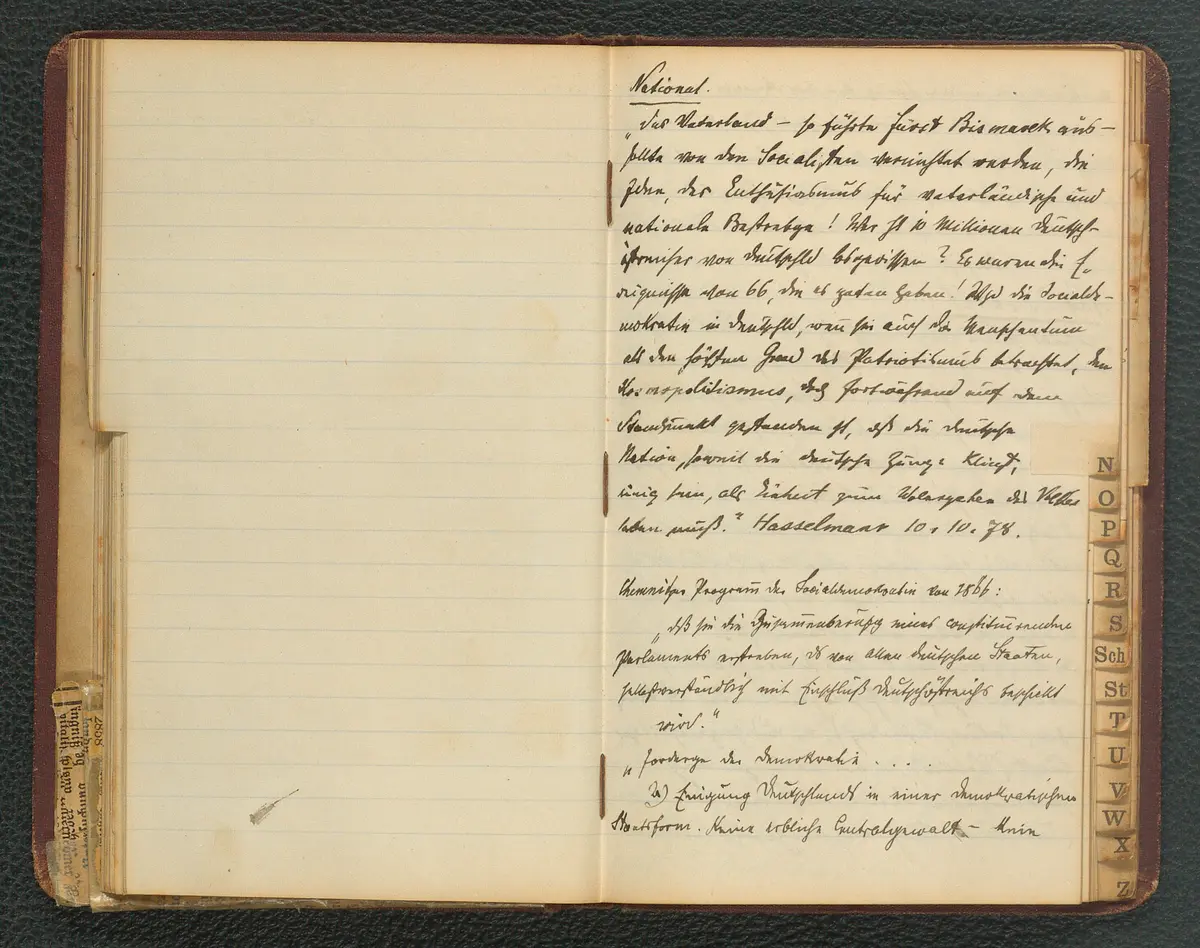 National.
„Das Vaterland – so führte Fürst Bismarck aus –
sollte von den Socialisten vernichtet werden, die
Idee, der Enthusiasmus für vaterländische und
nationale Bestrebge! Wer ht 10 Millionen Deutsch-
östreicher von Deutschld losgerissen? Es waren die E-
reignisse von 66, die es getan haben! Whd die Socialde-
mokratie in Deutschld, wenn sie auch das Menschentum
als den höchsten Grad des Patriotismus betrachtet, den
Kosmopolitismus, doch fortwährend auf dem
Standpunkt gestanden ht, dß die deutsche
Nation, soweit die deutsche Zunge klingt,
einig sein, als Einheit zum des Volkes
leben muß." Hasselmann 10. 10. 78.
Chemnitzer Programm der Socialdemokratie von 1866:
„dß sie die Zusammenberufg eines constituirenden
Parlaments erstreben, ds von allen deutschen Staaten,
selbstverständlich mit Einschluß Deutschöstreichs beschickt
wird."
„Forderge der Demokratie . . . .
2.) Einigung Deutschlands in einer demokratischen
Staatsform. Keine erbliche Centralgewalt – Kein
N
O
P
Q
R
S
Sch
St
T
U
V
W
X
Z